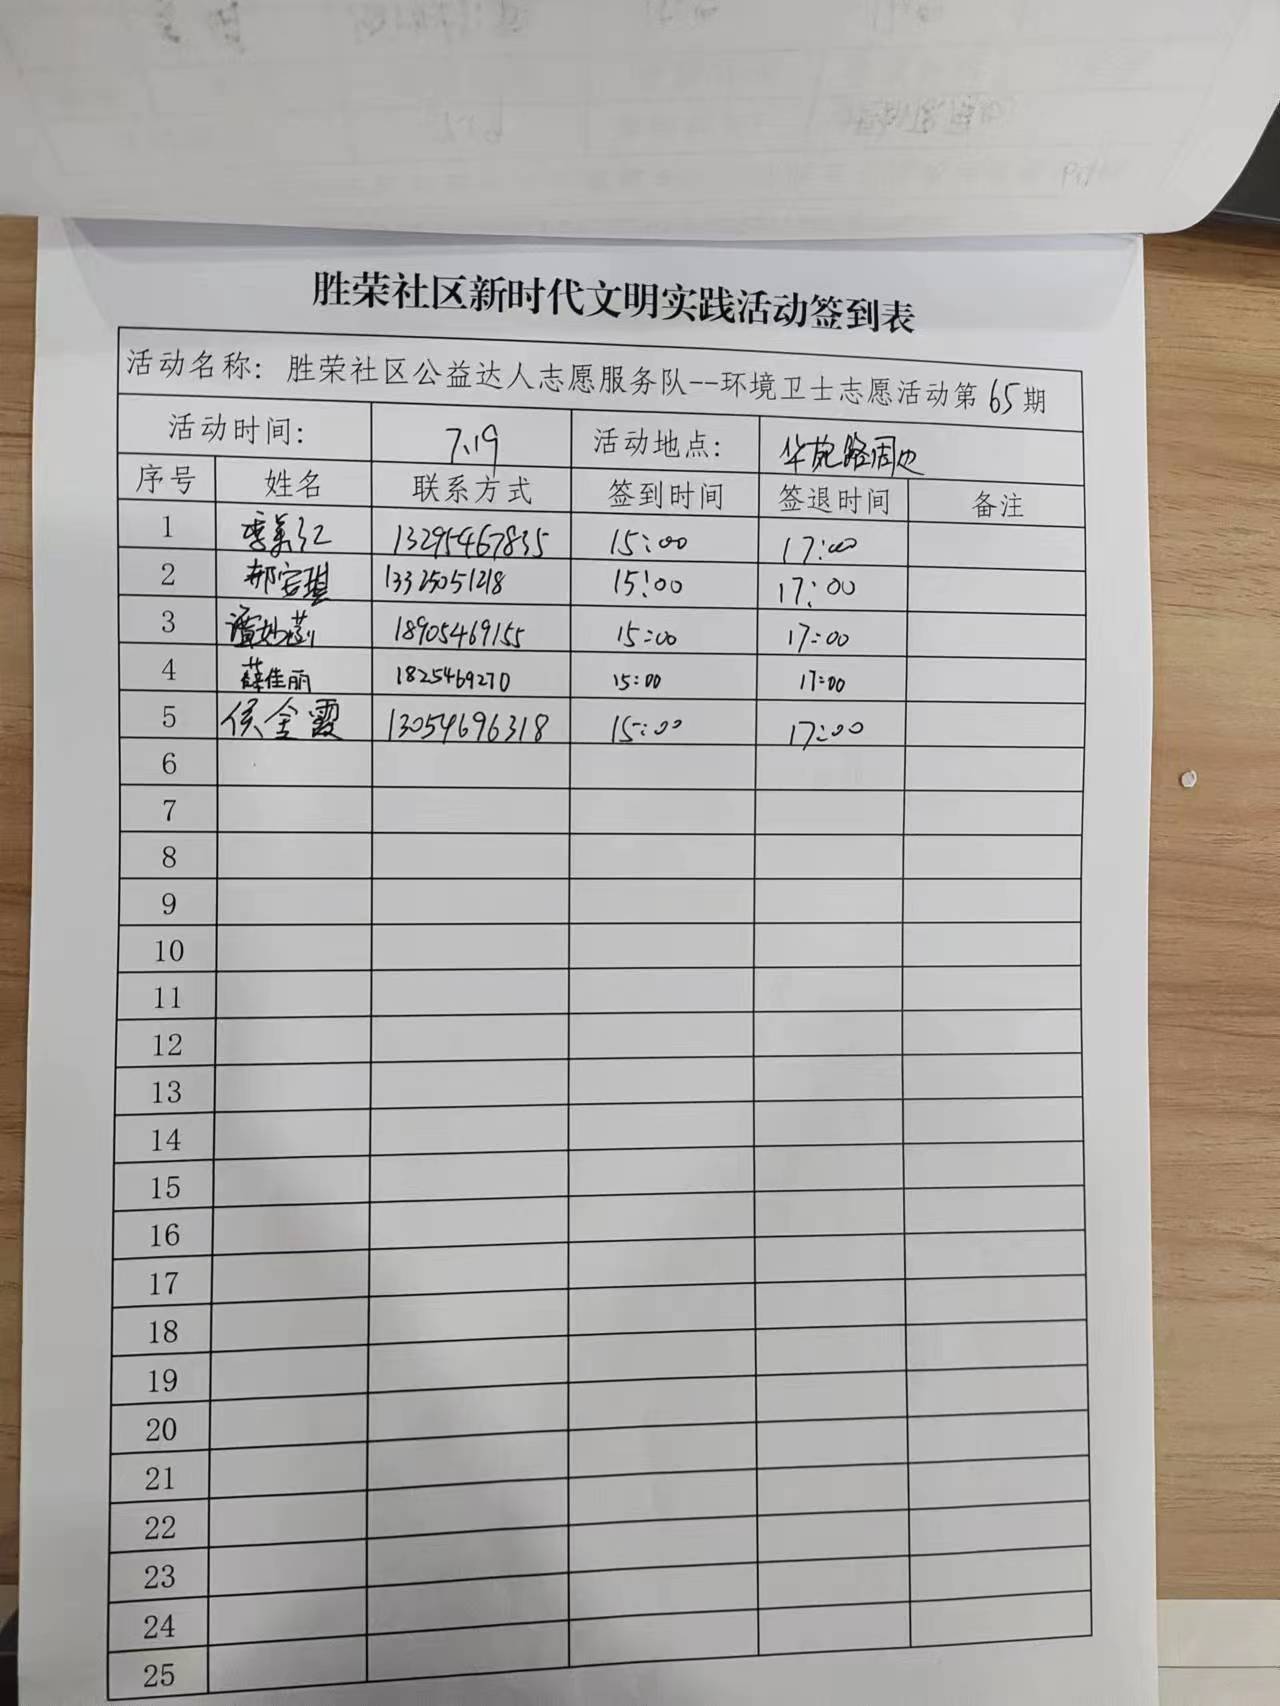 胜荣社区新时代文明实践活动签到表
活动名称：胜荣社区公益达人志愿服务队--环境卫士志愿活动第65期
活动时间： 7.19 活动地点： 华苑路周边
序号 姓名 联系方式 签到时间 签退时间 备注
1 李美红 13295467835 15:00 17:00
2 郝安琪 13325051218 15:00 17:00
3 潘妙 18905469155 15:00 17:00
4 薛佳丽 1825469270 15:00 17:00
5 侯金霞 13054696318 15:00 17:00
6
7
8
9
10
11
12
13
14
15
16
17
18
19
20
21
22
23
24
25